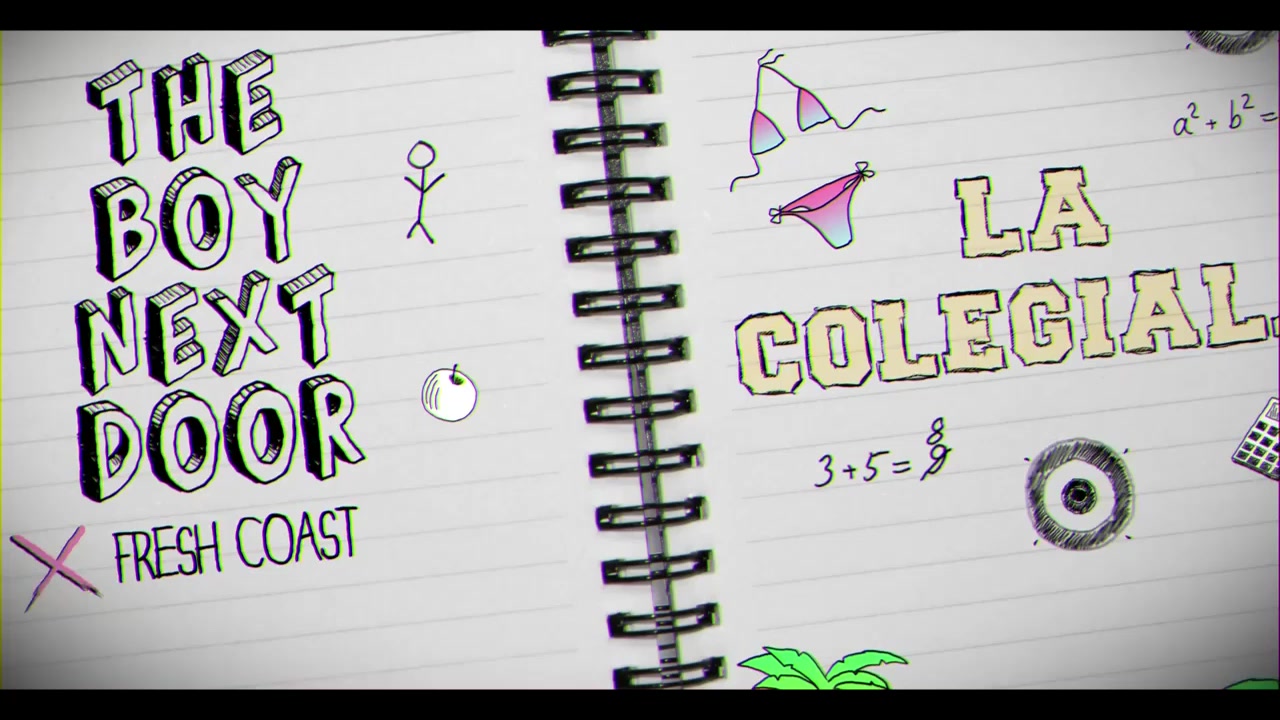 THE
BOY
NEXT
DOOR
FRESH COAST
a² + b² =
LA
COLEGIAL
8
3+5=9